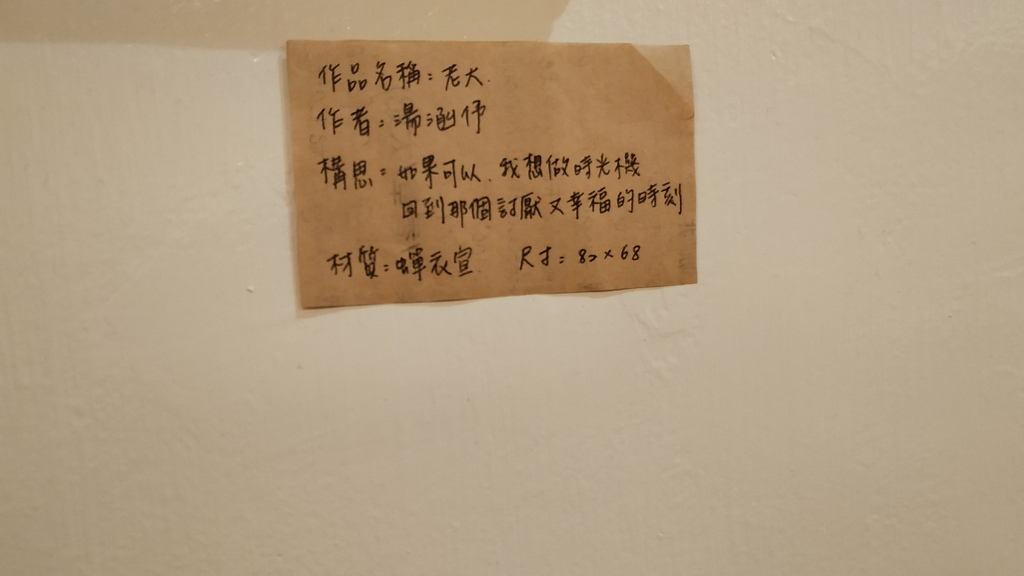 作品名稱：老大.
作者：湯涵伃
構思：如果可以、我想做時光機
回到那個討厭又幸福的時刻
材質：蟬衣宣 尺寸：80×68